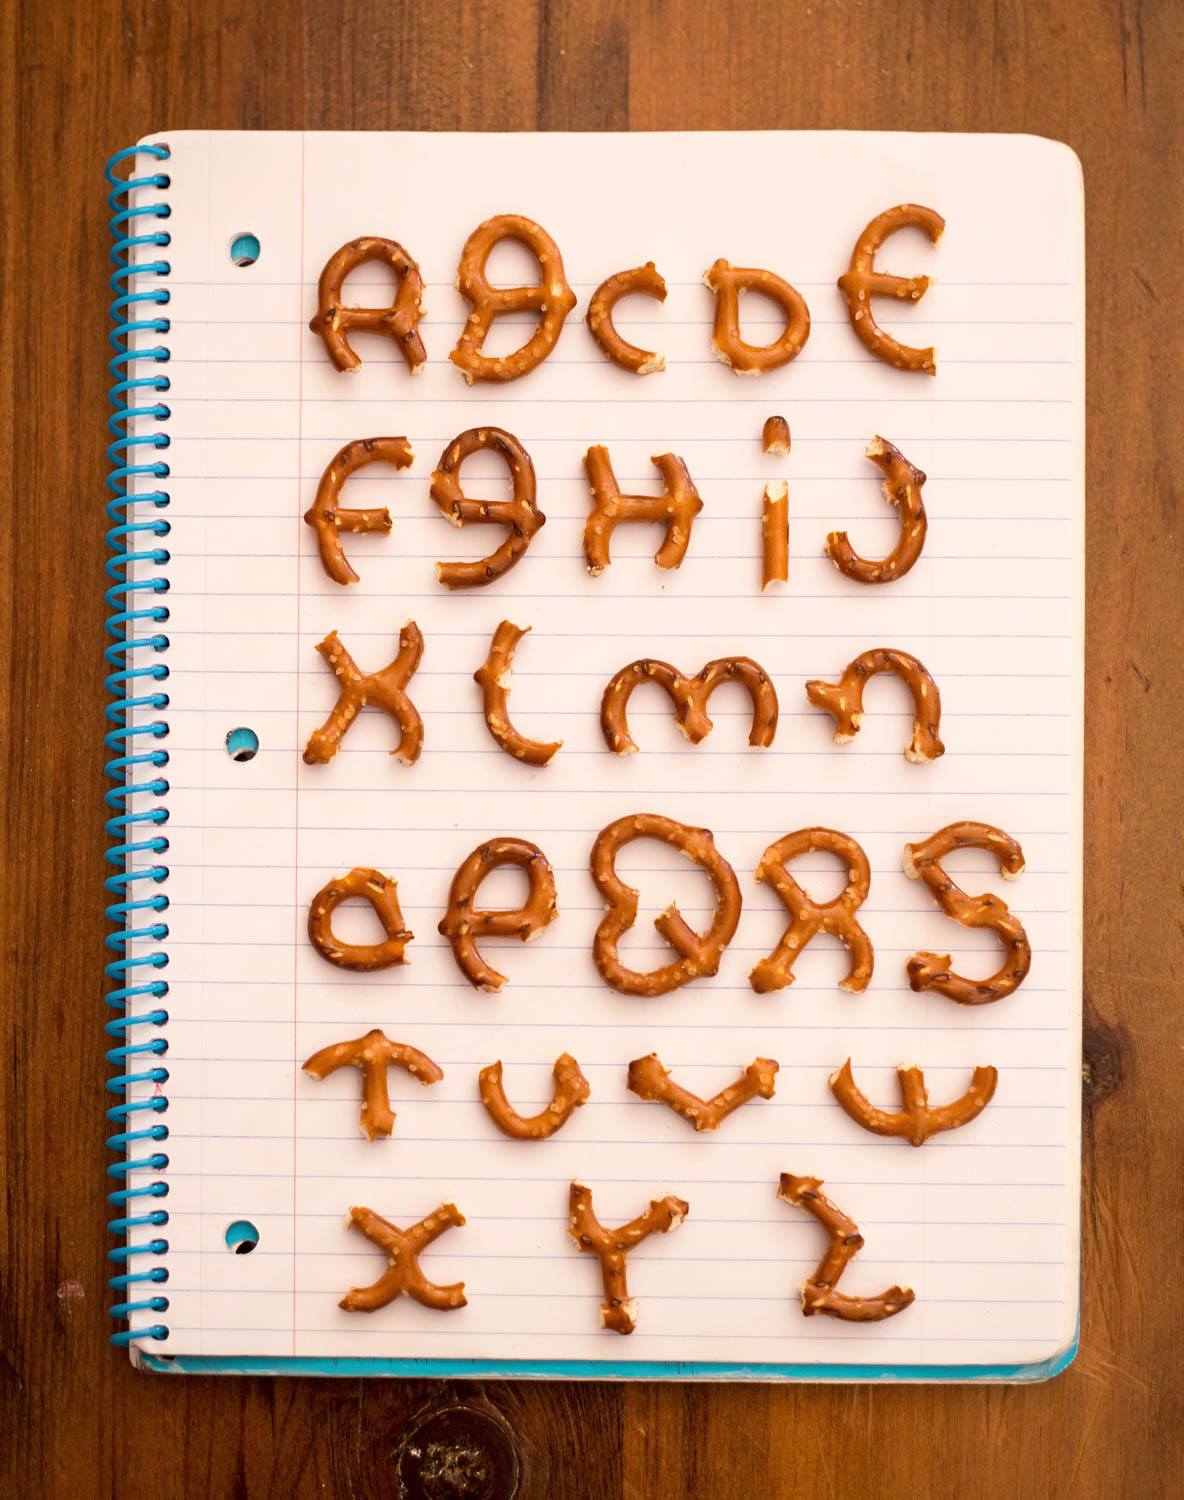 ABcDE
FgHiJ
Klmn
oPQRS
TUVW
XYZ